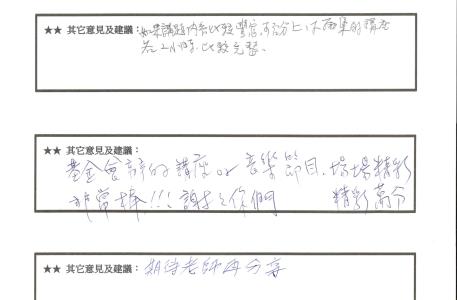 ★★ 其它意見及建議：如果講題內容比較豐富,可分上下兩集的講座
各2小時.比較完整。
★★ 其它意見及建議：
基金會辦的講座or音樂節目.場場精彩
非常棒!!!謝謝你們 精彩萬分
★★ 其它意見及建議：期待老師再分享